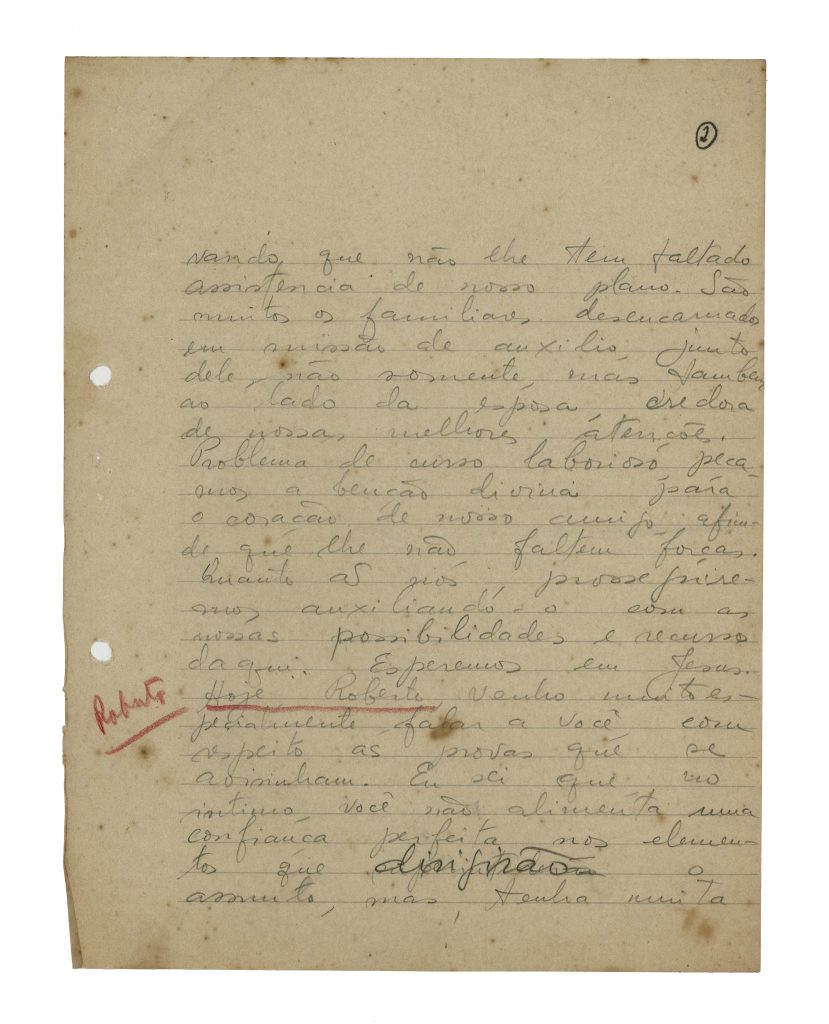 2
vando, que não lhe tem faltado
assistencia de nosso plano. São
muitos os familiares desencarnados
em missão de auxilio junto
dele, não somente, mas tambem
ao lado da esposa credora
de nossas melhores atenções.
Problema de curso laborioso peça-
mos a benção divina para
o coração de nosso amigo, afim-
de que lhe não faltem forças.
Quanto a nós, prosseguire-
mos auxiliando-o com as
nossas possibilidades e recurso
daqui. Esperemos em Jesus.
Roberto
Hoje Roberto, venho muito es-
pecialmente falar a você com
respeito as provas que se
avisinham. Eu sei que no
intimo você não alimenta uma
confiança perfeita nos elemen-
tos que dirigirão o
assunto, mas, tenha muita